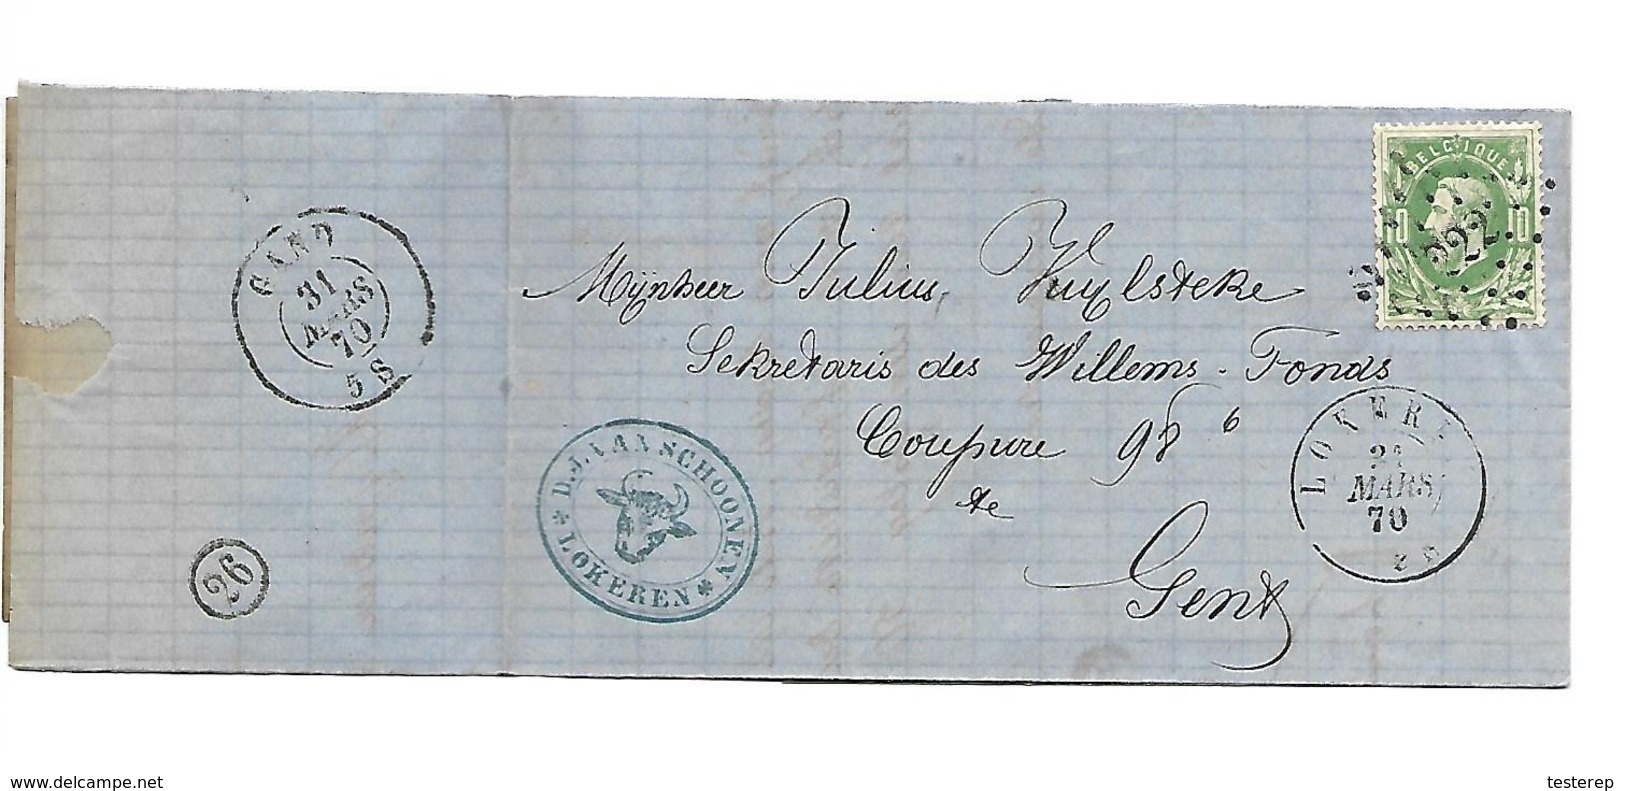 BELGIQUE
10 10
222
GAND
31
MARS
70
5 S
Mijnheer Julius Vuylsteke
Sekretaris des Willems-Fonds
Coupure 98 6
te
Gent
D. J. VAN SCHOONEN
* LOKEREN *
LOKER
MARS
70
26
www.delcampe.net
testerep